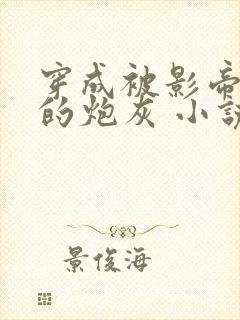 穿成被影帝
的炮灰 小説
景俊海